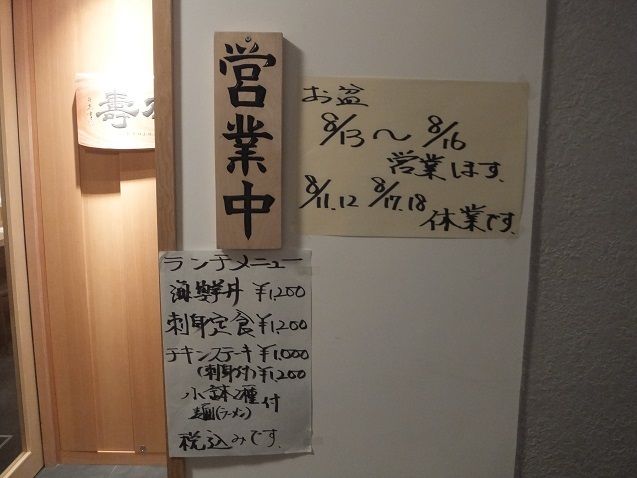 営業中
お盆
8/13～8/16
営業します。
8/11.12 8/17.18
休業です。
ランチメニュー
海鮮丼 ¥1,200
刺身定食 ¥1,200
チキンステーキ ¥1,000
(刺身付) ¥1,200
小鉢2種
麺(ラーメン) 付
税込みです。
寿